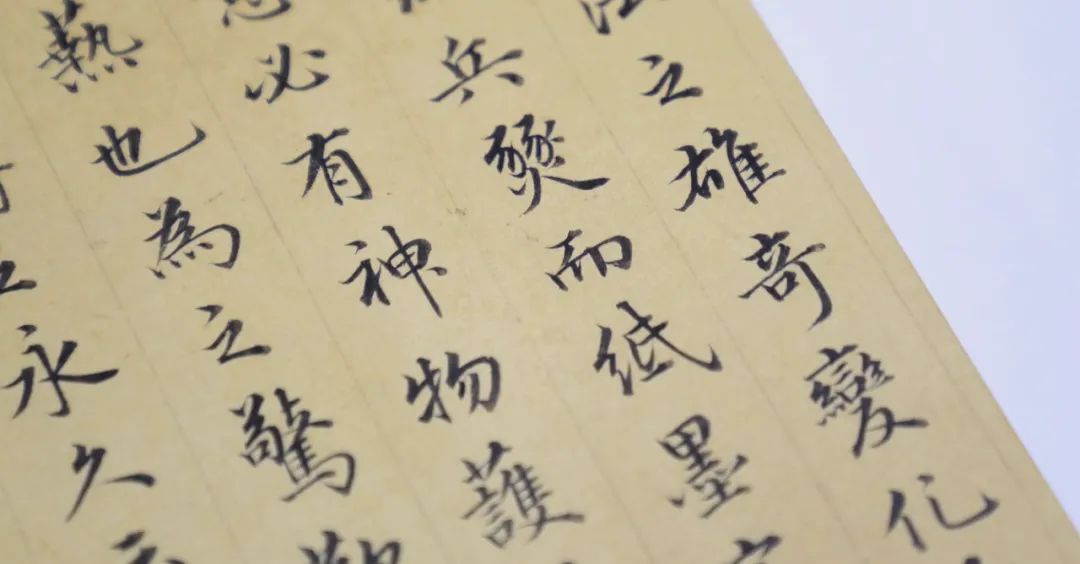 之雄奇變化
兵燹而紙墨
必有神物護
熱也為之驚
永久